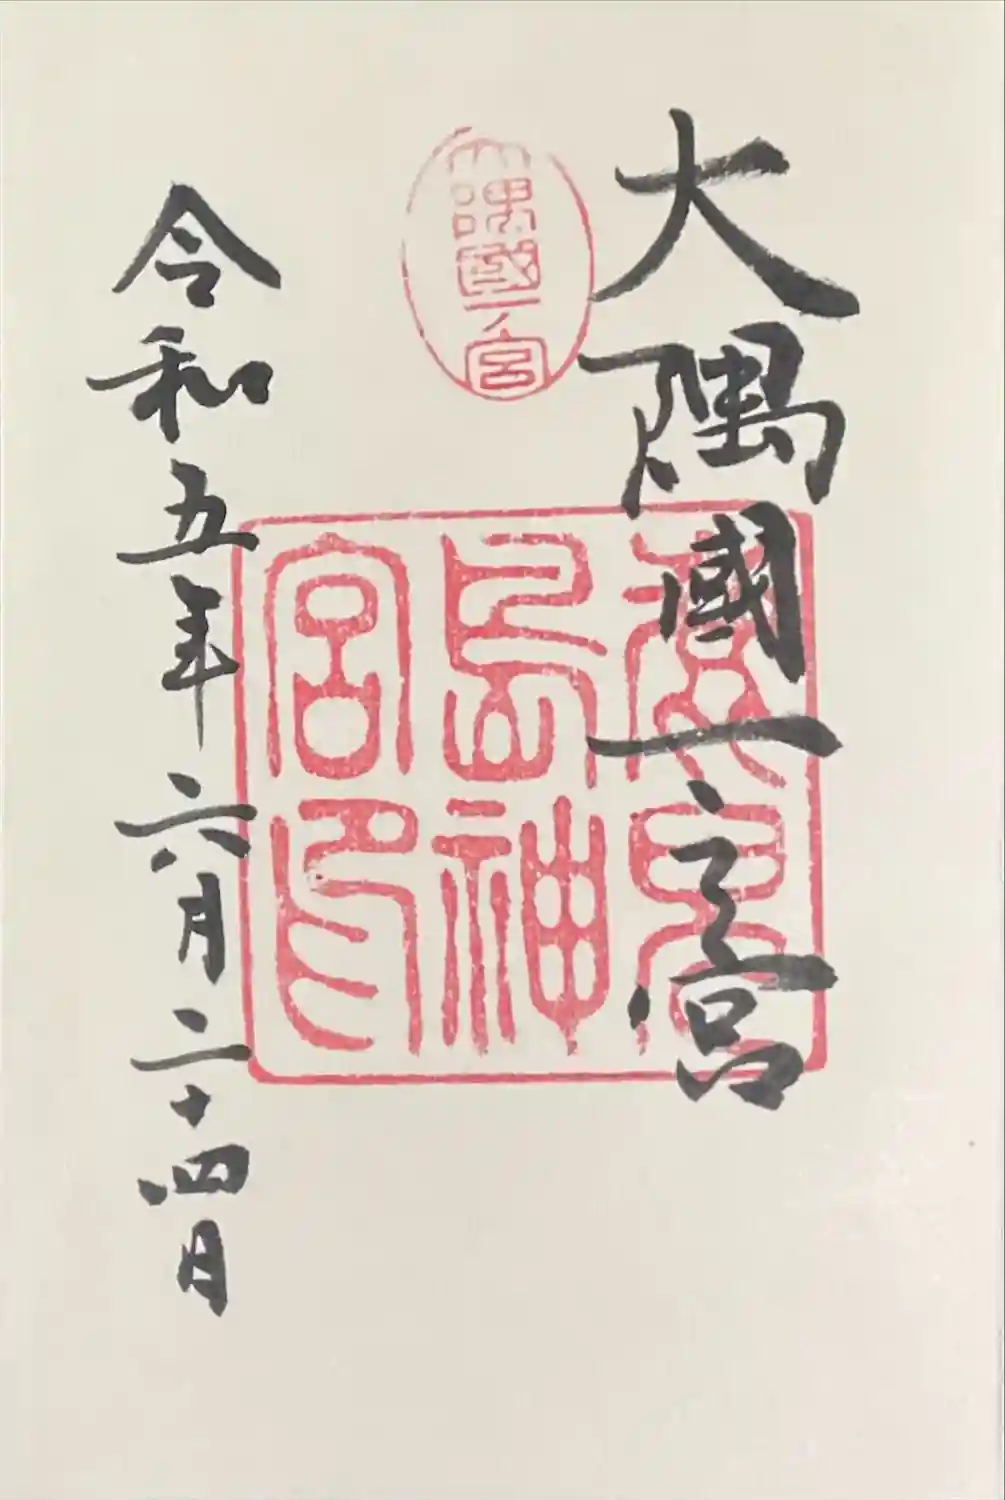 大隅國一之宮
大隅國一ノ宮
鹿児島神宮印
令和五年六月二十四日